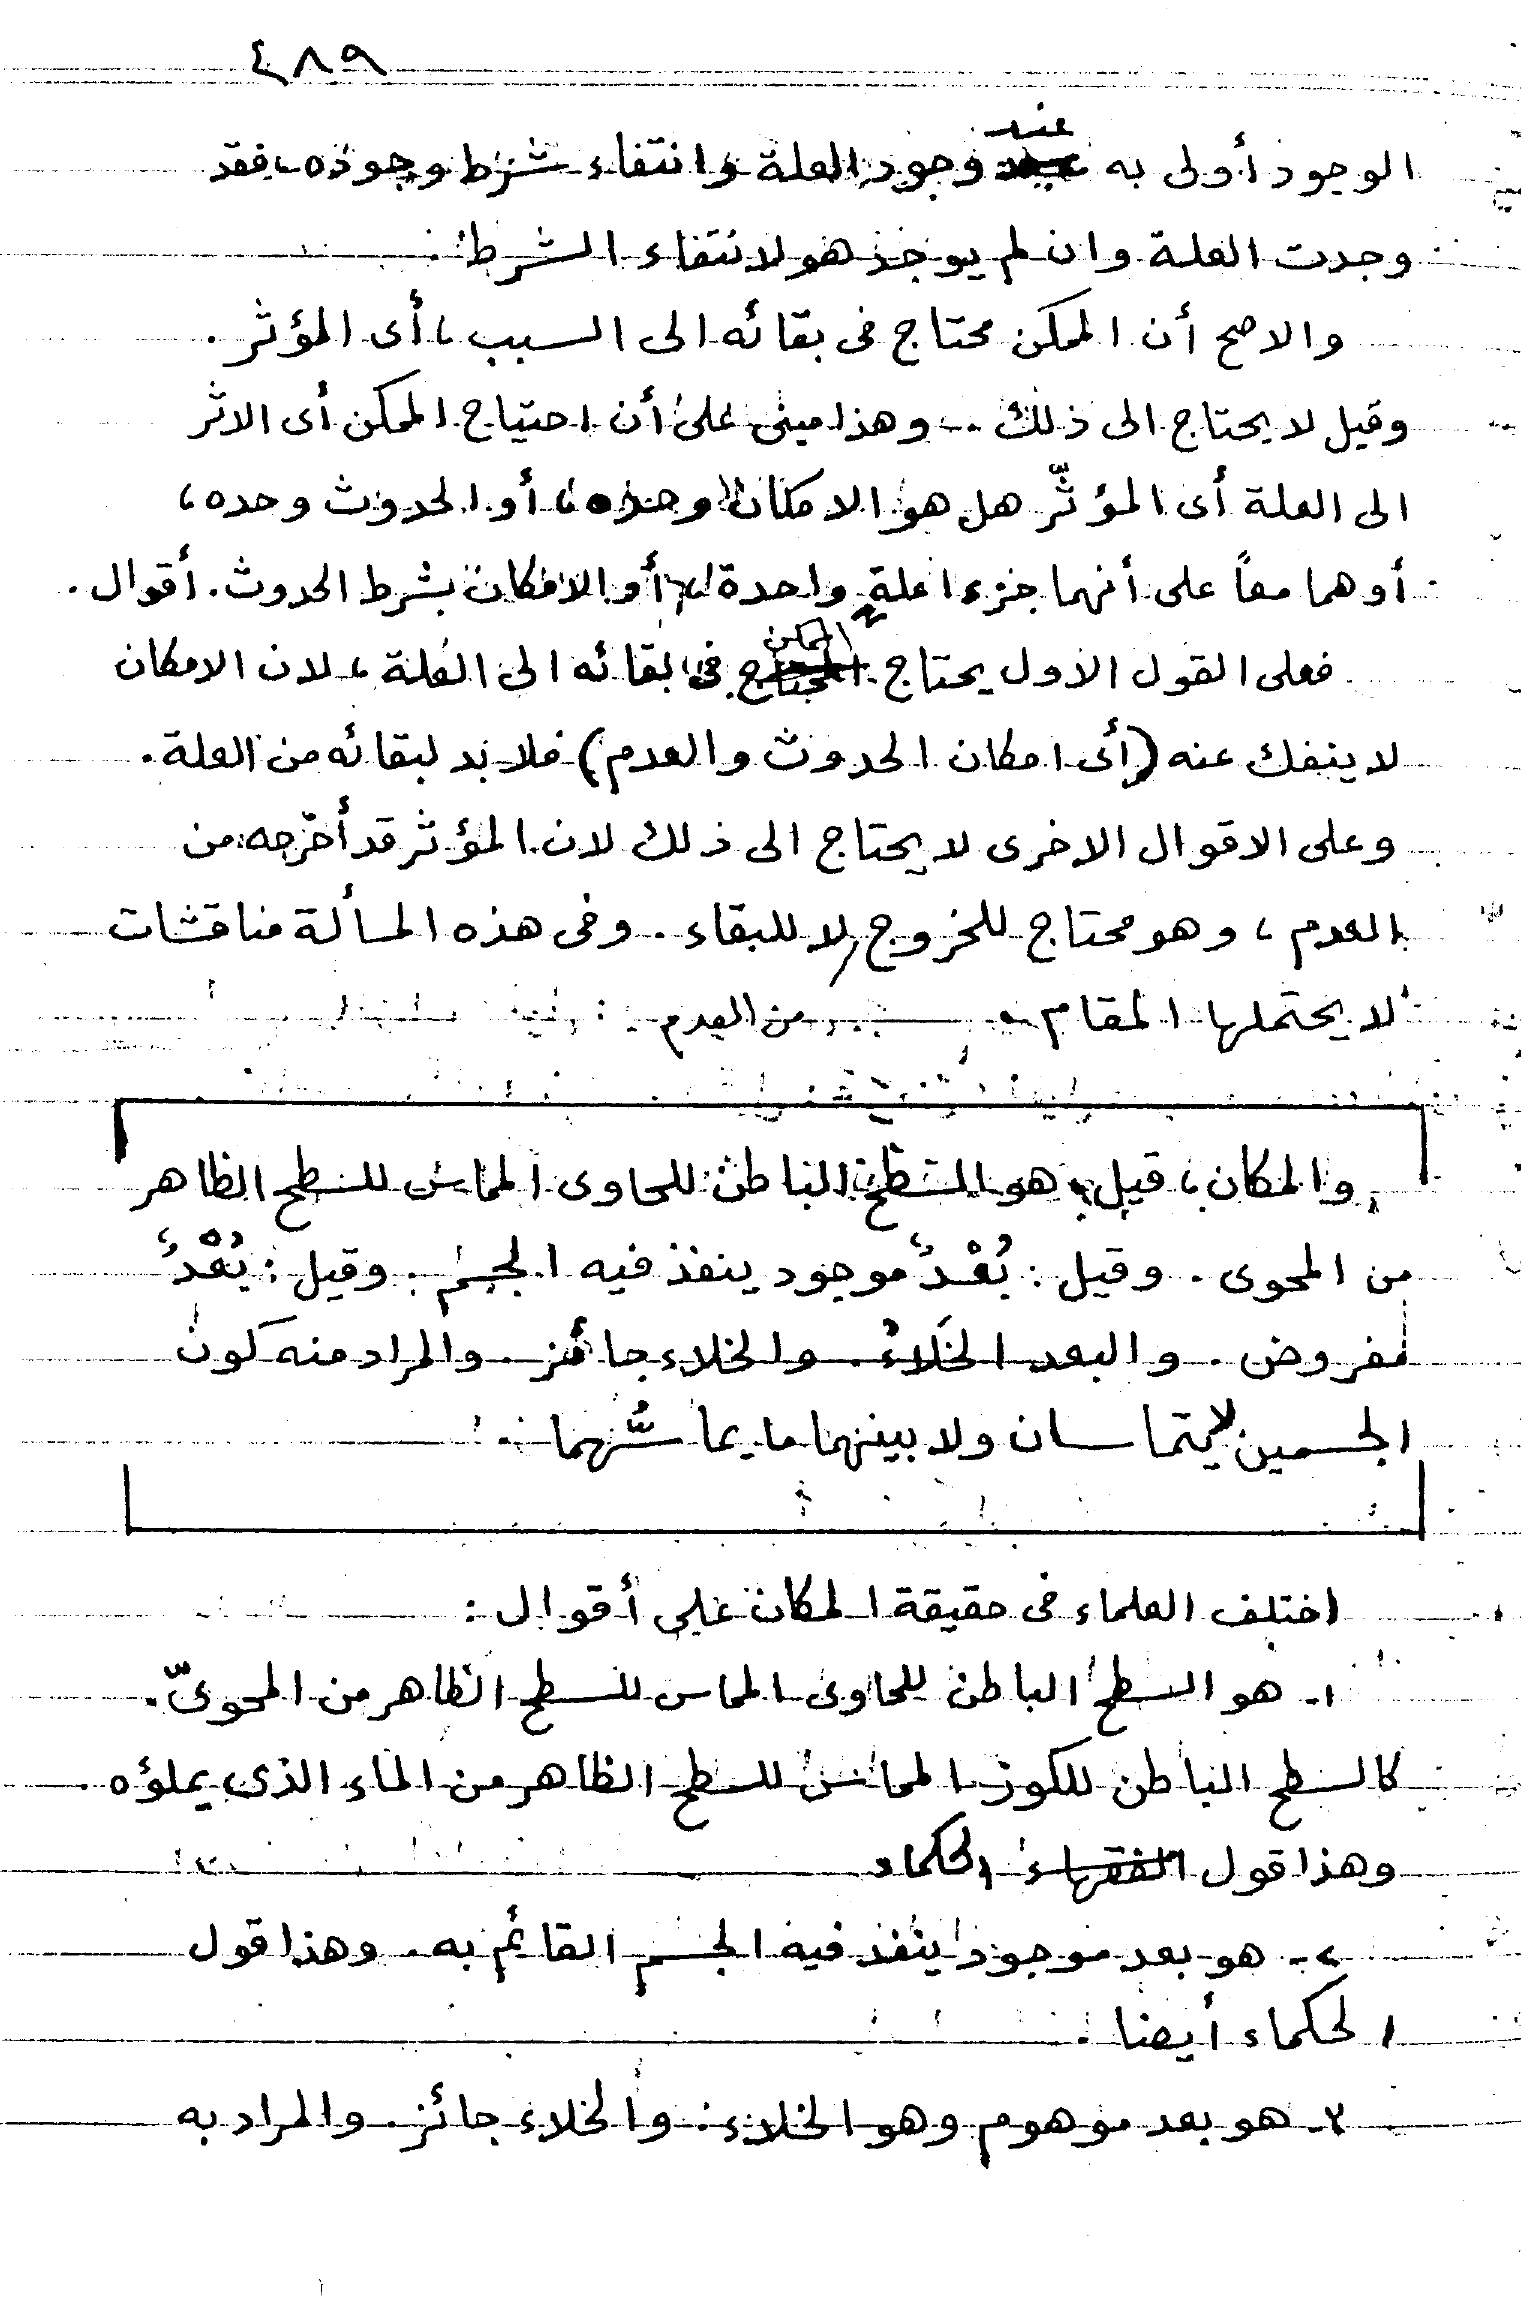 ٤٨٩
الوجود أولى به عند وجود العلة وانتفاء شرط وجوده، فقد
وجدت العلة وان لم يوجد هو لانتفاء الشرط.
والاصح أن الممكن محتاج فى بقائه الى السبب، أى المؤثر.
وقيل لا يحتاج الى ذلك .. وهذا مبنى على أن احتياج الممكن أى الاثر
الى العلة أى المؤثّر هل هو الامكان وحده، أو الحدوث وحده،
أو هما معاً على أنهما جزءا علةٍ واحدة أو الامكان بشرط الحدوث. أقوال.
فعلى القول الاول يحتاج الممكن فى بقائه الى العلة، لان الامكان
لا ينفك عنه (أى امكان الحدوث والعدم) فلا بد لبقائه من العلة.
وعلى الاقوال الاخرى لا يحتاج الى ذلك لان المؤثر قد أخرجه من
العدم، وهو محتاج للخروج لا للبقاء. وفى هذه المسألة مناقشات
لا يحتملها المقام. من العدم
والمكان، قيل، هو السطح الباطن للحاوى المماس للسطح الظاهر
من المحوى. وقيل: بُعْدٌ موجود ينفذ فيه الجسم. وقيل: بُعْدٌ
مفروض. والبعد الخَلاءُ. والخلاء جائز. والمراد منه كون
الجسمين لا يتماسان ولا بينهما ما يماسُّهما.
اختلف العلماء فى حقيقة المكان على أقوال:
١- هو السطح الباطن للحاوى المماس للسطح الظاهر من المحوىّ.
كالسطح الباطن للكوز المماس للسطح الظاهر من الماء الذى يملؤه.
وهذا قول الفقهاء الحكماء
٢- هو بعد موجود ينفذ فيه الجسم القائم به. وهذا قول
الحكماء أيضا.
٣- هو بعد موهوم وهو الخلاء: والخلاء جائز. والمراد به